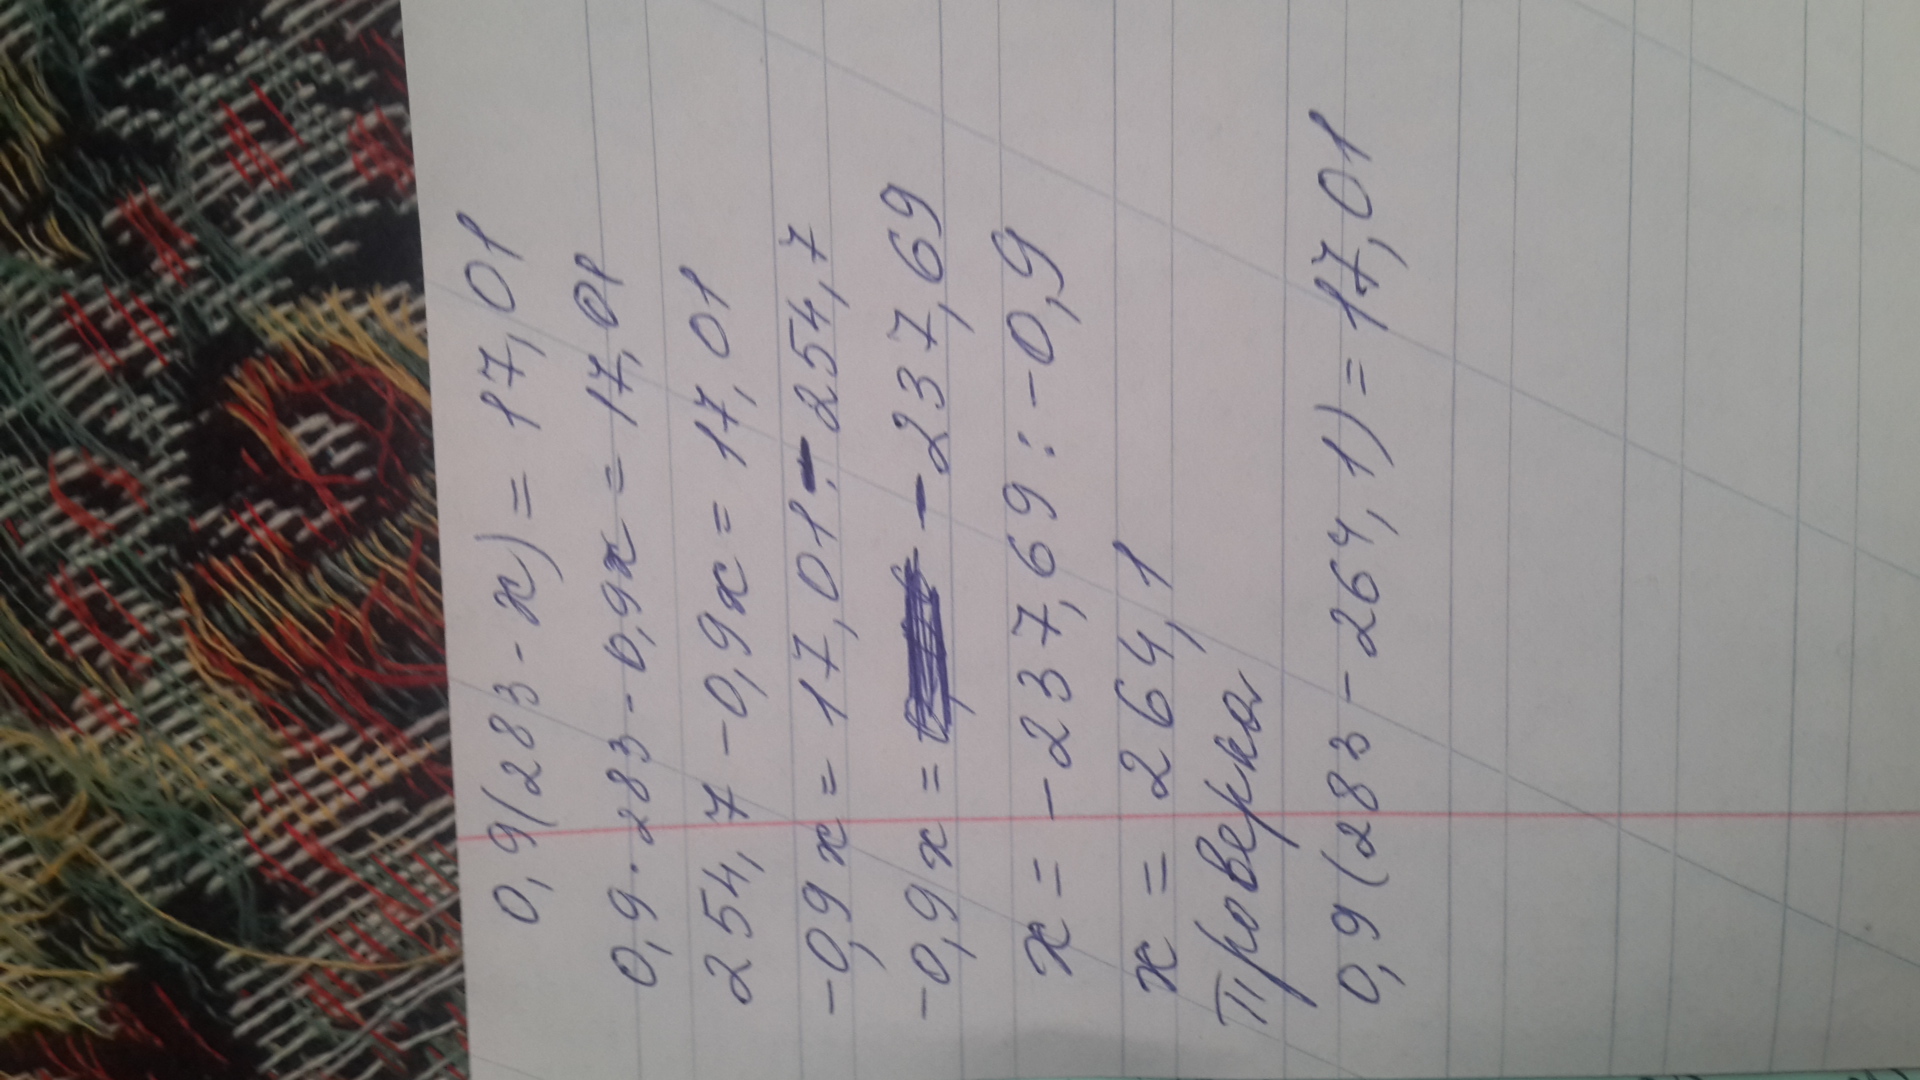 0,9(283-x)=17,01
0,9·283-0,9x=17,01
254,7-0,9x=17,01
-0,9x=17,01-254,7
-0,9x=-237,69
x=-237,69:-0,9
x=264,1
Проверка
0,9(283-264,1)=17,01